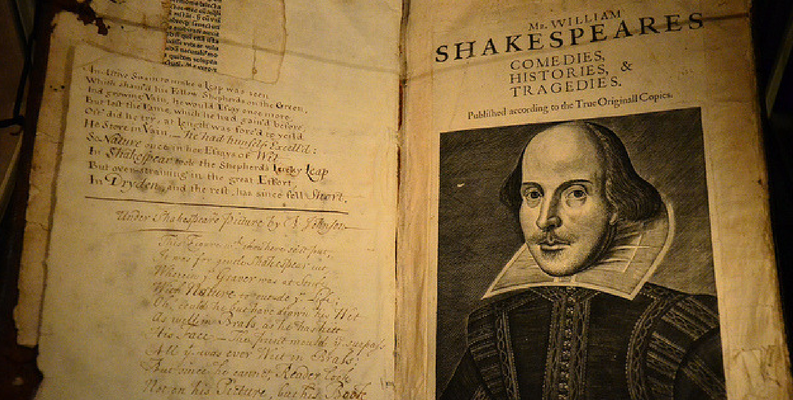 An Active Swain to make a Leap was seen
Which sham'd his Fellow Shepherds on the Green,
And growing Vain, he would Essay once more,
But lost the Fame, which he had gain'd before,
Oft' did he try, at length was forc'd to yeild
He Strove in Vain,— He had himself Excell'd:
So Nature once in her Essays of Wit,
In Shakespear took the Shepherd's Lucky Leap
But over-straining in the great Effort,
In Dryden, and the rest, has since fell Short.
Under Shakespears Picture by Johnson
This Figure yt. you here see put,
It was for gentle Shakespear cut,
Wherein ye Graver was at Strife
With Nature to outdo ye Life;
Oh, could he but have drawn his Wit
As well in Brass, as he has hitt
His Face — The print would then surpass
All yt. was ever Writ in Brass;
But since he cannot, Reader look
Not on his Picture, but his Book
Mr. WILLIAM
SHAKESPEARES
COMEDIES,
HISTORIES, &
TRAGEDIES.
Published according to the True Originall Copies.